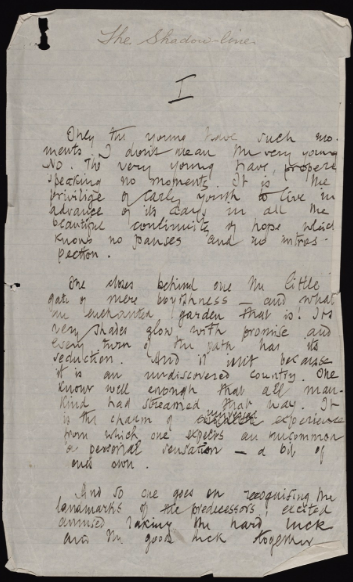 The Shadow-line
I
Only the young have such mo-
ments. I don't mean the very young
No. The very young have, properly
speaking no moments. It is the
privilige of early youth to live in
advance of its days in all the
beautiful continuity of hope which
knows no pauses and no intros-
pection.
One closes behind one the little
gate of mere boyishness — and what
an enchanted garden that is! Its
very shades glow with promise and
every turn of the path has its
seduction. And it isn't because
it is an undiscovered country. One
knows well enough that all man-
kind had streamed that way. It
is the charm of universal experience
from which one expects an uncommon
or personal sensation — a bit of
one's own.
And so one goes on recognising the
landmarks of the predecessors, excited
amused taking the hard luck
and the good luck together